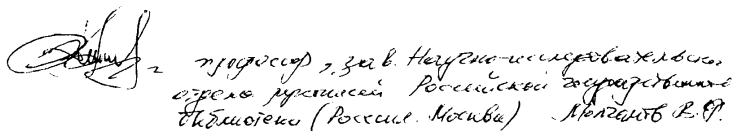 профессор, зав. Научно-исследовательск.
отдела рукописей Российской государственной
библиотеки (Россия. Москва) Молчанов В.Ф.